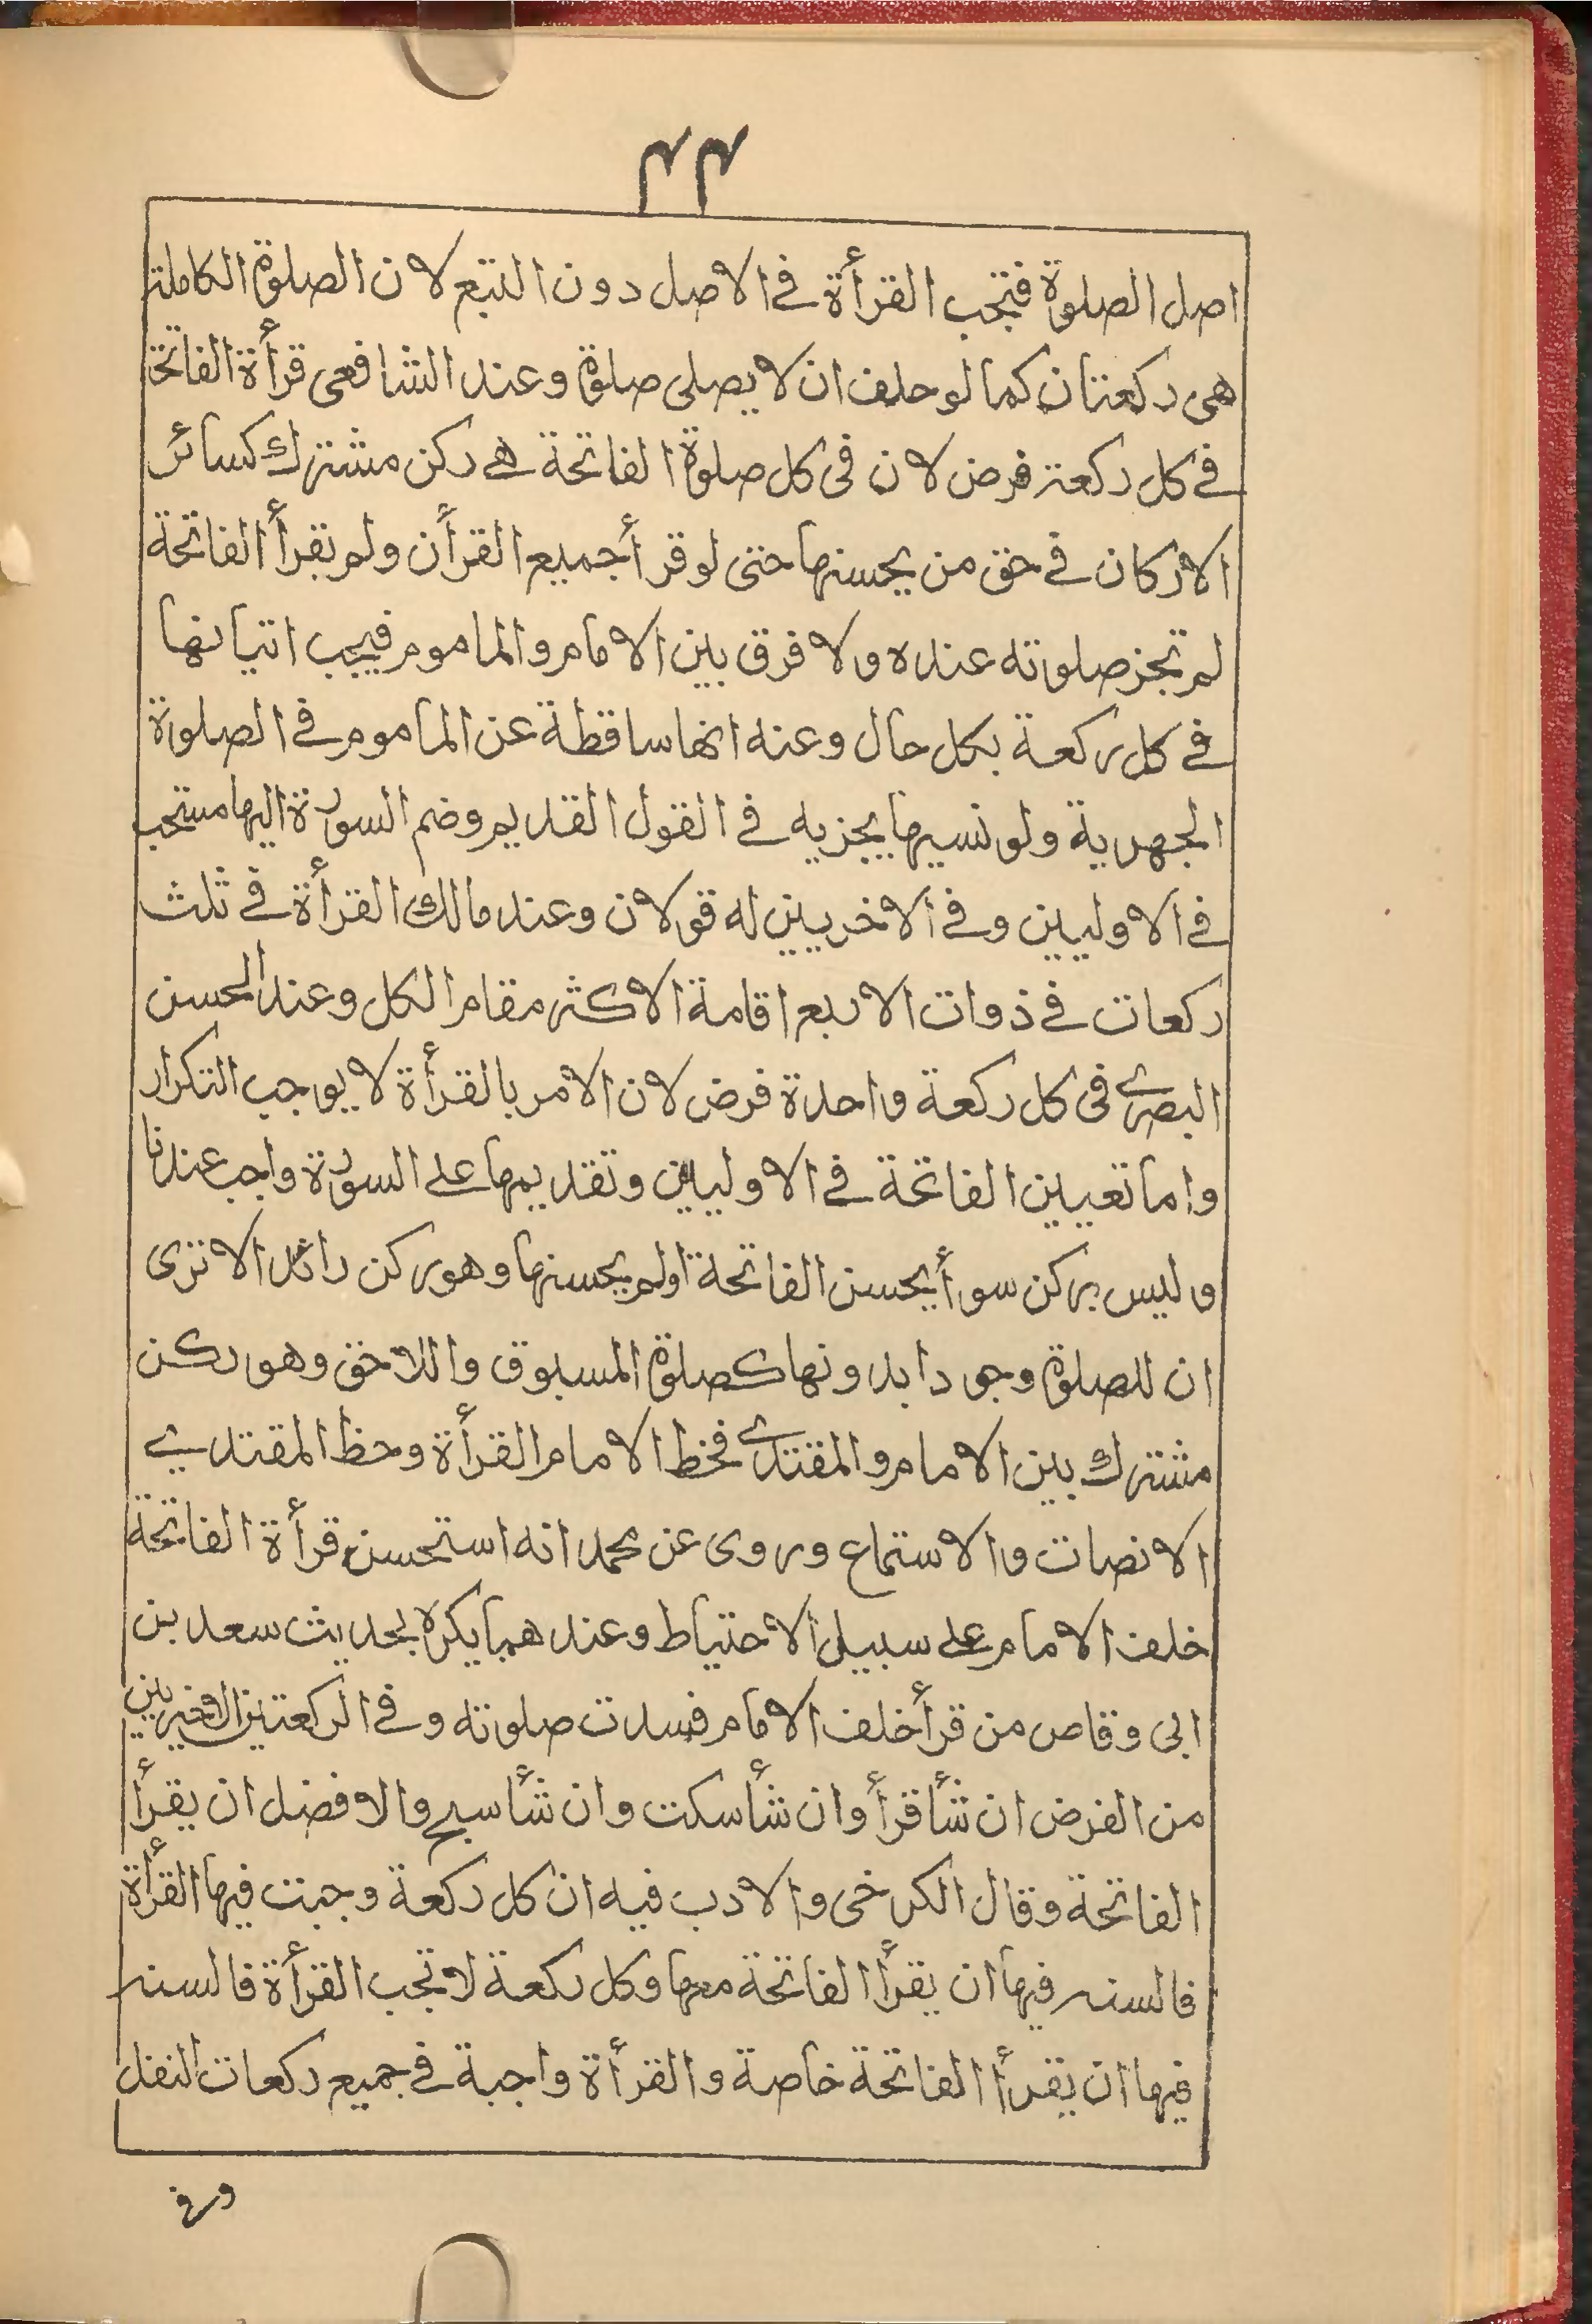 ٤٤
اصل الصلوة فتجب القرأة في الاصل دون التبع لان الصلوة الكاملة
هى ركعتان كما لو حلف ان لا يصلى صلوة وعند الشافعى قرأة الفاتحة
في كل ركعة فرض لان فى كل صلوة الفاتحة هے ركن مشترك كسائر
الاركان في حق من يحسنها حتى لو قرأ جميع القرأن ولم يقرأ الفاتحة
لم تجز صلوته عنده ولا فرق بين الامام والماموم فيجب اتيانها
في كل ركعة بكل حال وعنه انها ساقطة عن الماموم في الصلوة
الجهرية ولو نسيها يجزيه في القول القديم وضم السورة اليها مستحب
في الاوليين وفي الاخريين له قولان وعند مالك القرأة في ثلث
ركعات في ذوات الاربع اقامة الاكثر مقام الكل وعند الحسن
البصرے فى كل ركعة واحدة فرض لان الامر بالقرأة لا يوجب التكرار
واما تعيين الفاتحة في الاوليين وتقديمها على السورة واجب عندنا
وليس بركن سوأ يحسن الفاتحة او لم يحسنها وهو ركن زائد الا ترى
ان للصلوة وجودا بدونها كصلوة المسبوق واللاحق وهو ركن
مشترك بين الامام والمقتدے فحظ الامام القرأة وحظ المقتدے
الانصات والاستماع وروى عن محمد انه استحسن قرأة الفاتحة
خلف الامام على سبيل الاحتياط وعندهما يكره لحديث سعد بن
ابى وقاص من قرأ خلف الامام فسدت صلوته وفي الركعتين الاخيريين
من الفرض ان شأ قرأ وان شأ سكت وان شأ سبح والافضل ان يقرأ
الفاتحة وقال الكرخى والادب فيه ان كل ركعة وجبت فيها القرأة
فالسنة فيها ان يقرأ الفاتحة معها وكل ركعة لا تجب القرأة فالسنة
فيها ان يقرأ الفاتحة خاصة والقرأة واجبة في جميع ركعات النفل
وفي